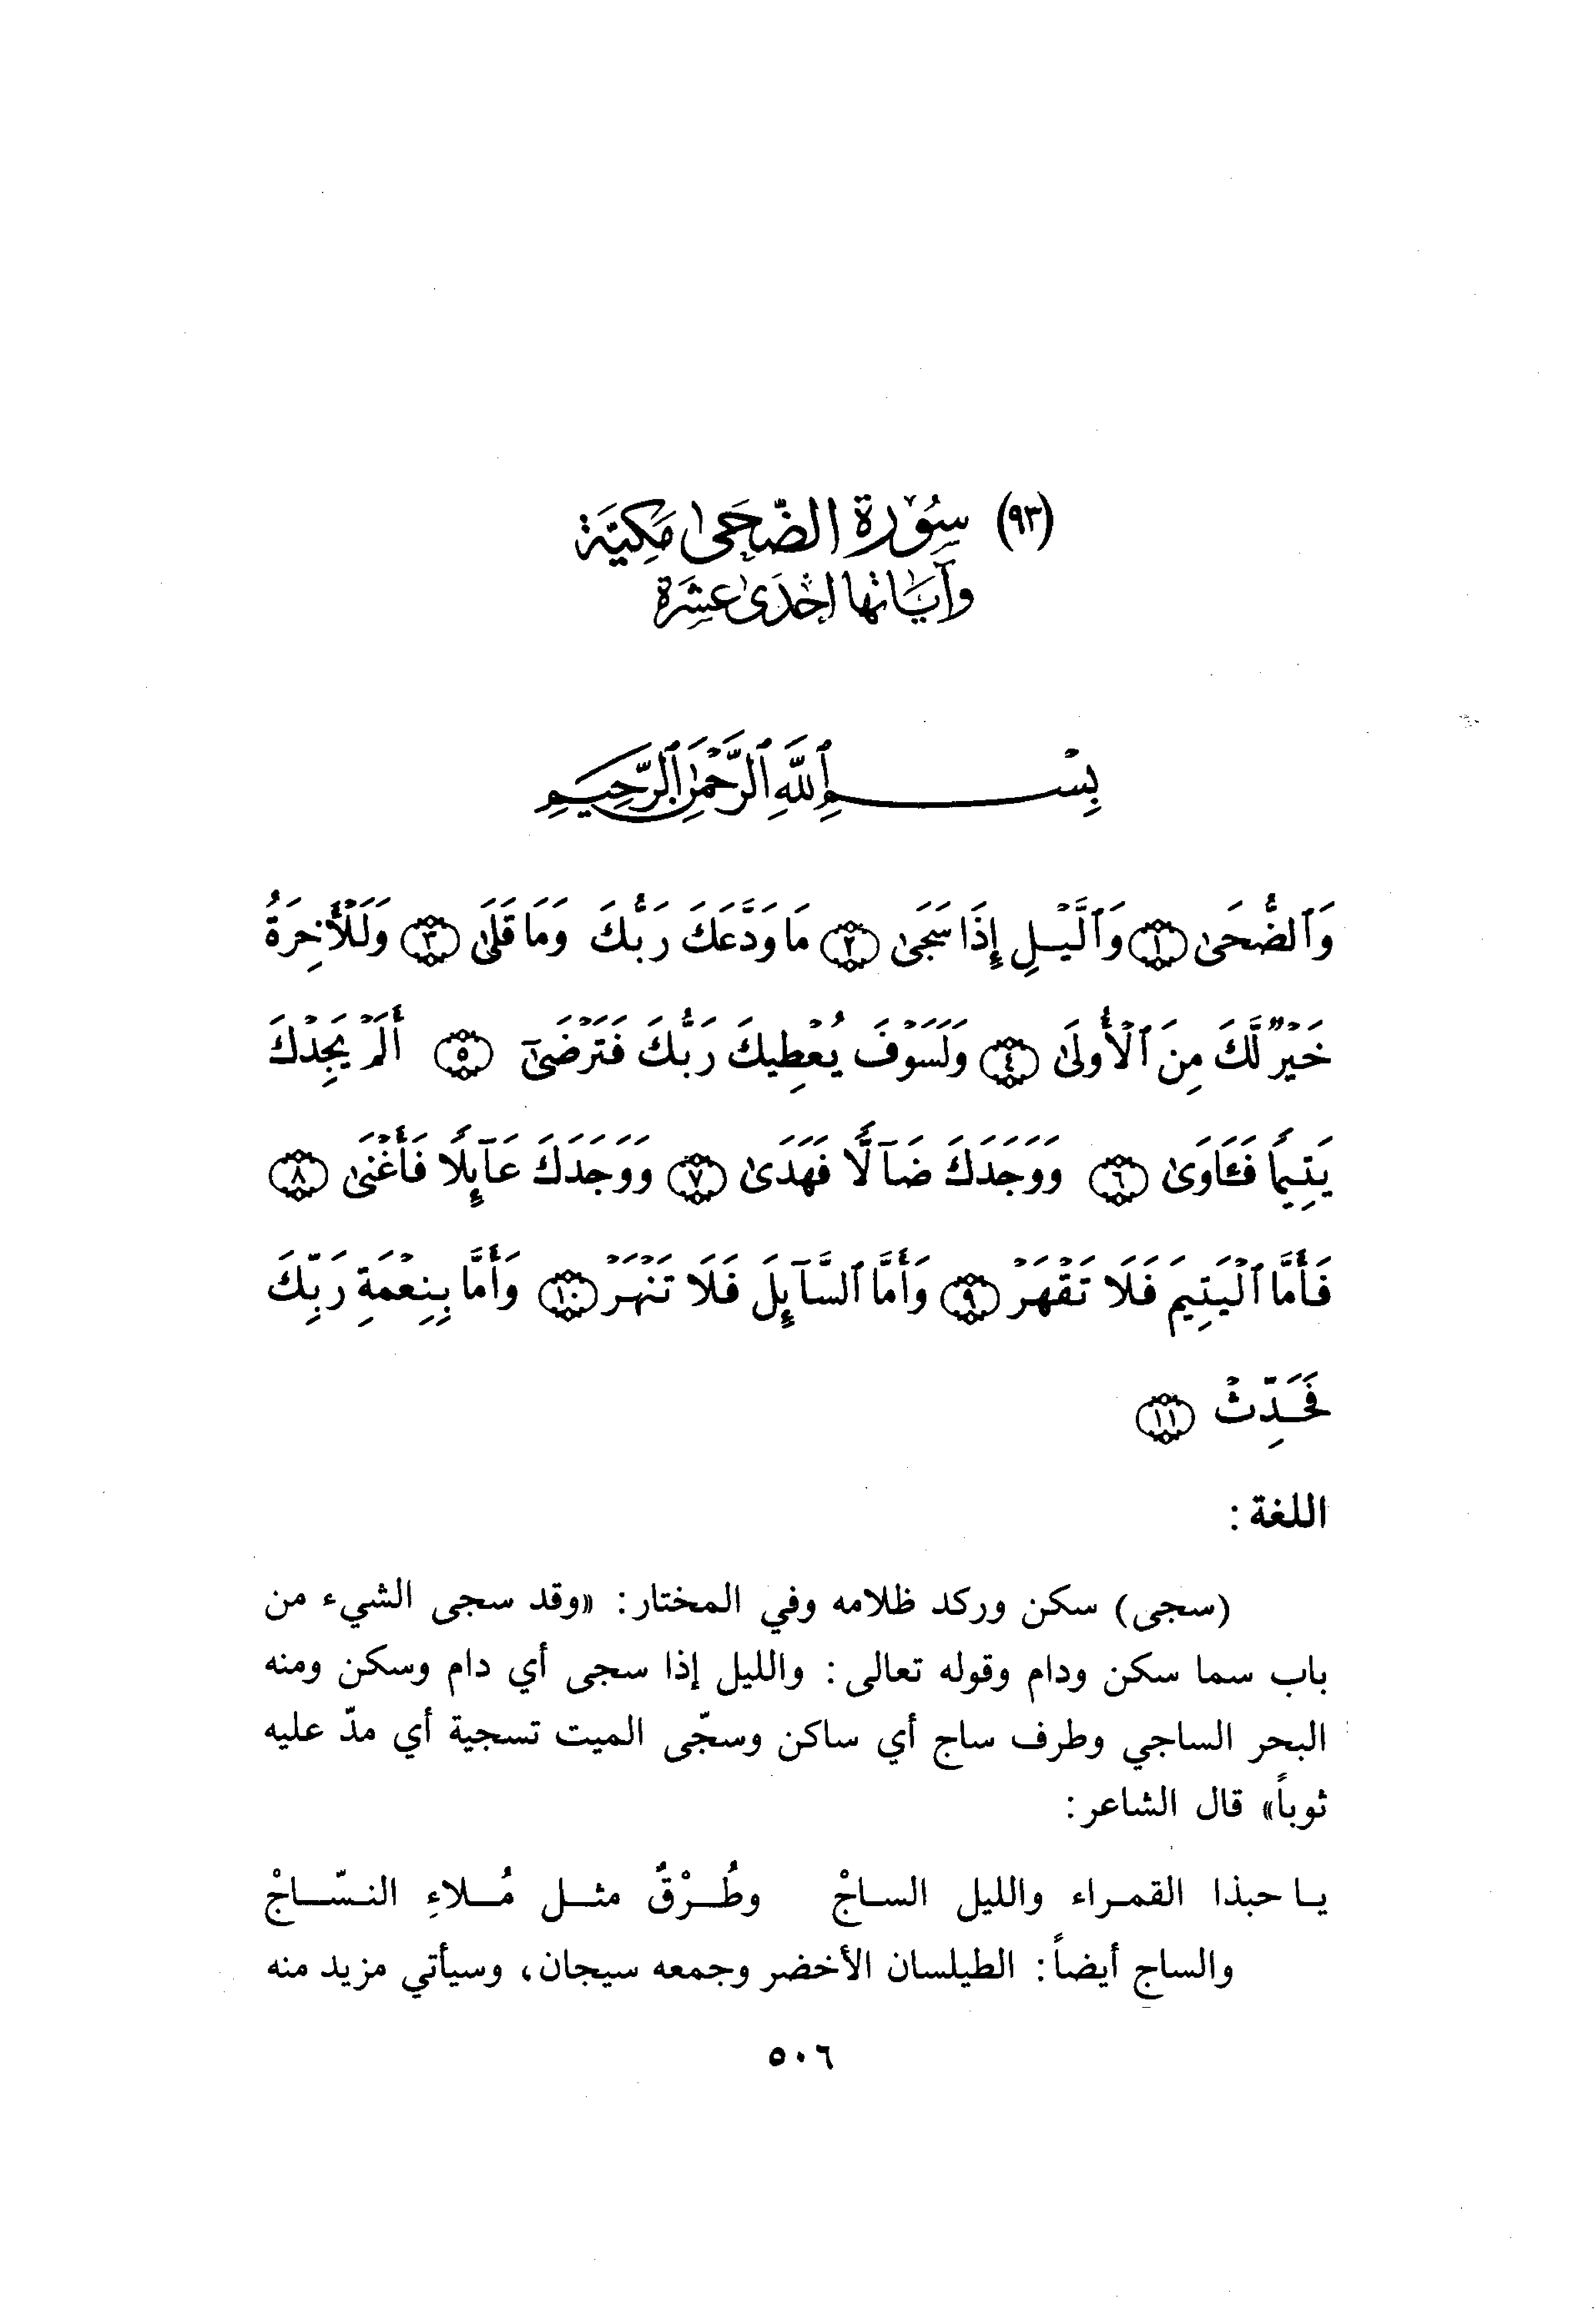 (٩٣) سُوۡرَة الضّحَىٰ مَكِيَّة
وآيَاتها اِحْدَىٰ عَشِرَة
بِسۡمِ ٱللَّهِ ٱلرَّحۡمَٰنِ ٱلرَّحِيمِ
وَٱلضُّحَىٰ ١ وَٱلَّيۡلِ إِذَا سَجَىٰ ٢ مَا وَدَّعَكَ رَبُّكَ وَمَا قَلَىٰ ٣ وَلَلۡأٓخِرَةُ
خَيۡرٞ لَّكَ مِنَ ٱلۡأُولَىٰ ٤ وَلَسَوۡفَ يُعۡطِيكَ رَبُّكَ فَتَرۡضَىٰٓ ٥ أَلَمۡ يَجِدۡكَ
يَتِيمٗا فَـَٔاوَىٰ ٦ وَوَجَدَكَ ضَآلّٗا فَهَدَىٰ ٧ وَوَجَدَكَ عَآئِلٗا فَأَغۡنَىٰ ٨
فَأَمَّا ٱلۡيَتِيمَ فَلَا تَقۡهَرۡ ٩ وَأَمَّا ٱلسَّآئِلَ فَلَا تَنۡهَرۡ ١٠ وَأَمَّا بِنِعۡمَةِ رَبِّكَ
فَحَدِّثۡ ١١
اللغة :
(سجى) سكن وركد ظلامه وفي المختار: «وقد سجى الشيء من
باب سما سكن ودام وقوله تعالى: والليل إذا سجى أي دام وسكن ومنه
البحر الساجي وطرف ساج أي ساكن وسجّى الميت تسجية أي مدّ عليه
ثوباً» قال الشاعر:
يا حبذا القمراء والليل الساجْ وطُرْقٌ مثل مُلاءِ النسّاجْ
والساج أيضاً: الطيلسان الأخضر وجمعه سيجان، وسيأتي مزيد منه
٥٠٦